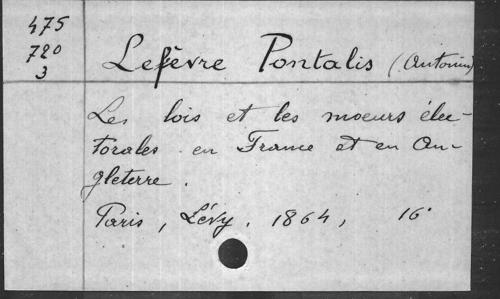 475
720
3
Lefèvre Pontalis (Antonin)
Les lois et les moeurs élec-
torales en France et en An-
gleterre.
Paris, Lévy. 1864, 16°